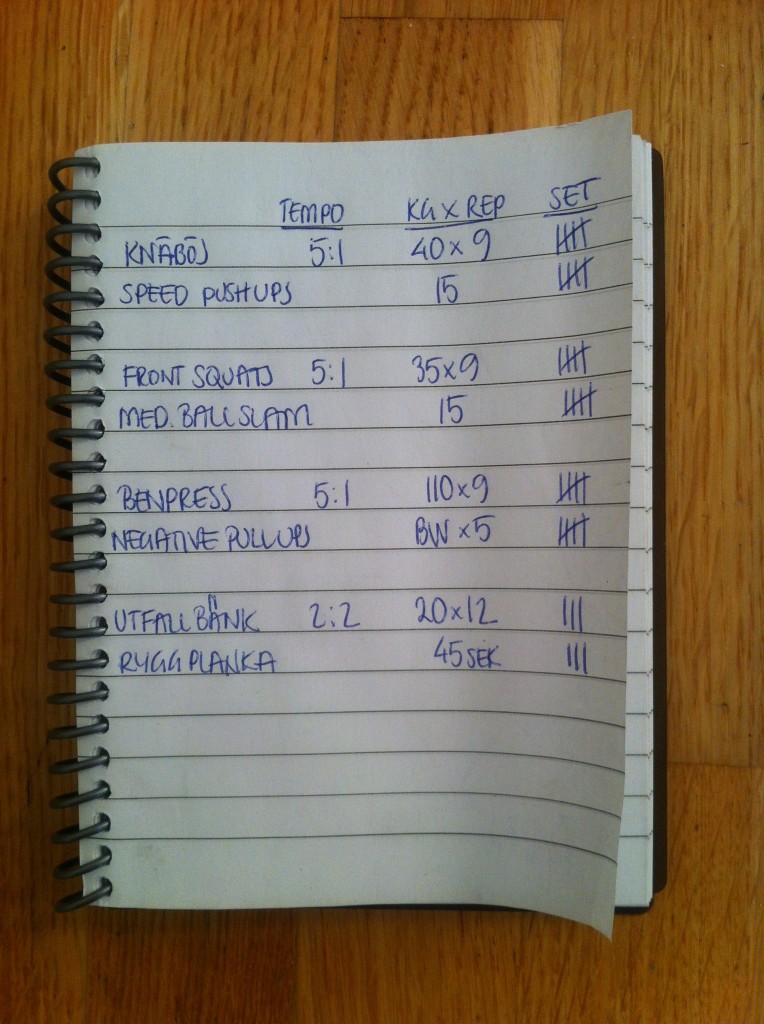 TEMPO KG X REP SET
KNÄBÖJ 5:1 40 x 9 卌
SPEED PUSHUPS 15 卌
FRONT SQUATS 5:1 35x9 卌
MED. BALL SLAM 15 卌
BENPRESS 5:1 110x9 卌
NEGATIVE PULLUPS BW x5 卌
UTFALL BÄNK 2:2 20x12 |||
RYGGPLANKA 45 SEK |||